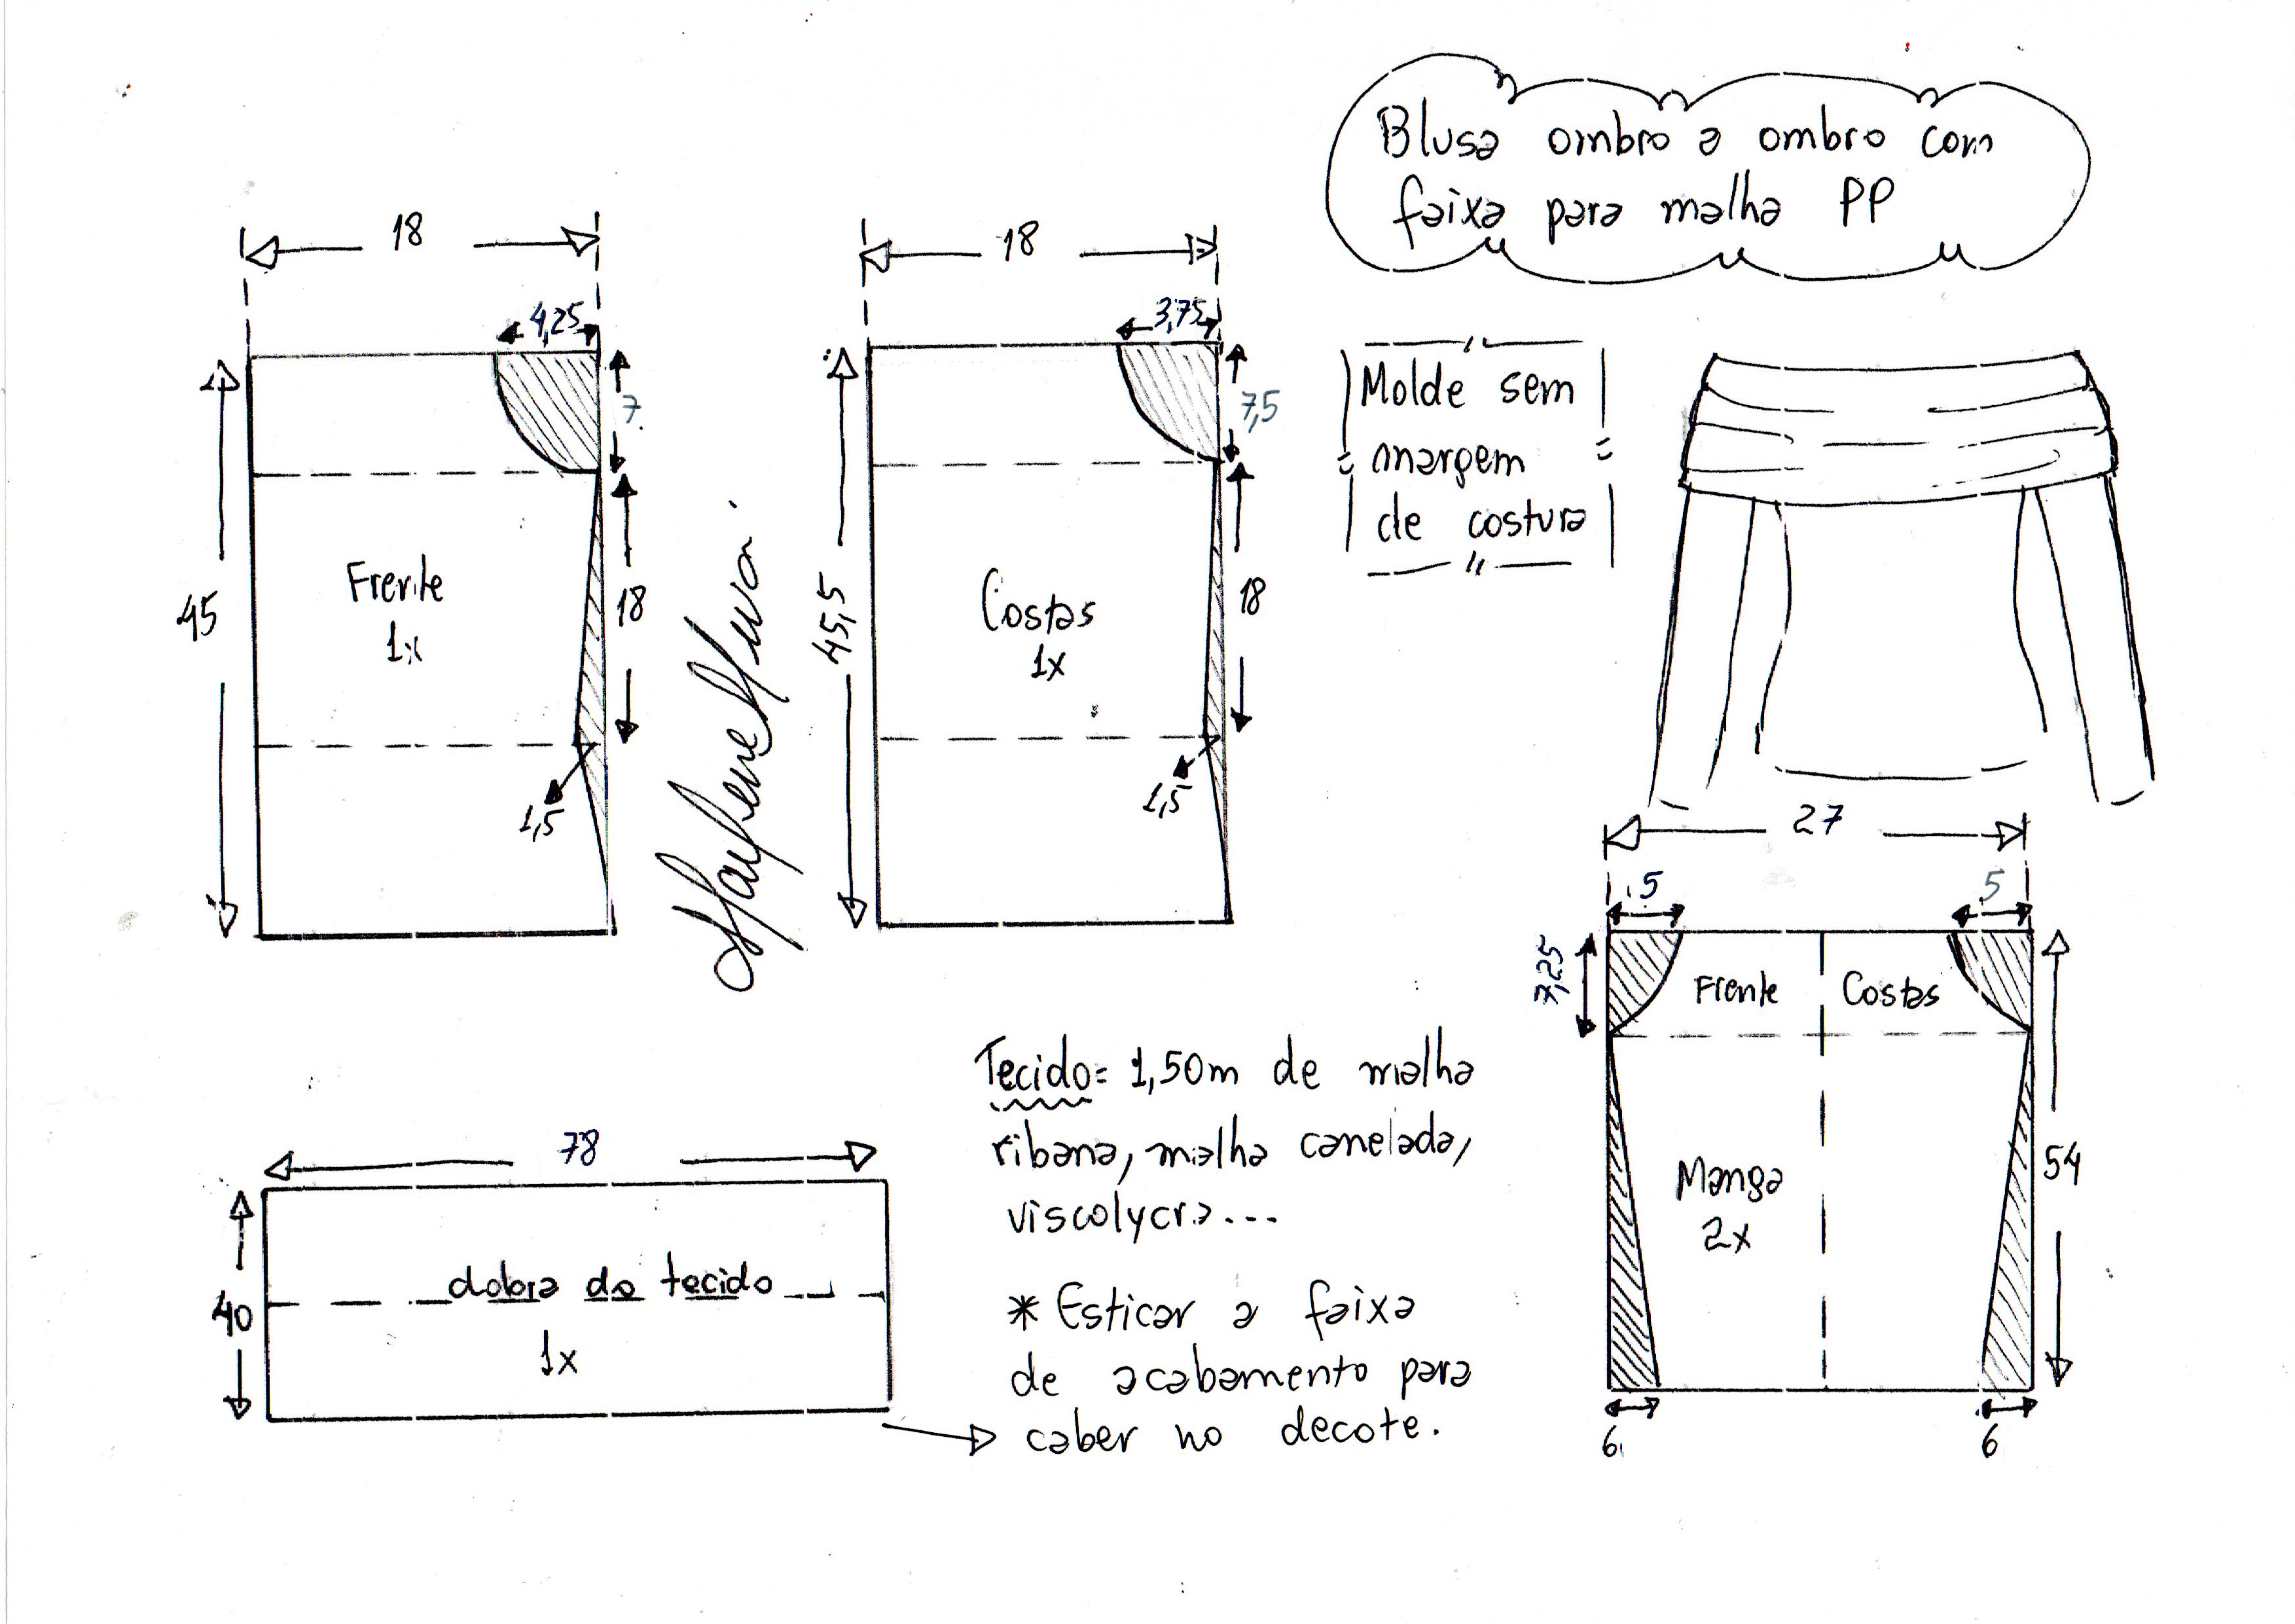 Blusa ombro a ombro com
faixa para malha PP
18
4,25
7
45
Frente
1x
18
1,5
18
3,75
7,5
45,5
Costas
1x
18
1,5
Molde sem
margem
de costura
27
5
5
7,25
Frente
Costas
Manga
2x
54
6
6
78
40
dobra do tecido
1x
Tecido= 1,50m de malha
ribana, malha canelada,
viscolycra...
* Esticar a faixa
de acabamento para
caber no decote.